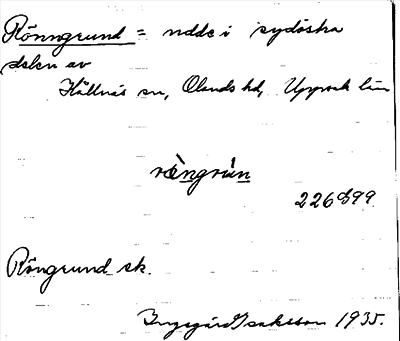 Rönngrund = udde i sydöstra
delen av
Hållnäs sn, Olands hd, Uppsala län
rængrùn
226899
Röngrund sk.
Ingegärd Isaksson 1935.